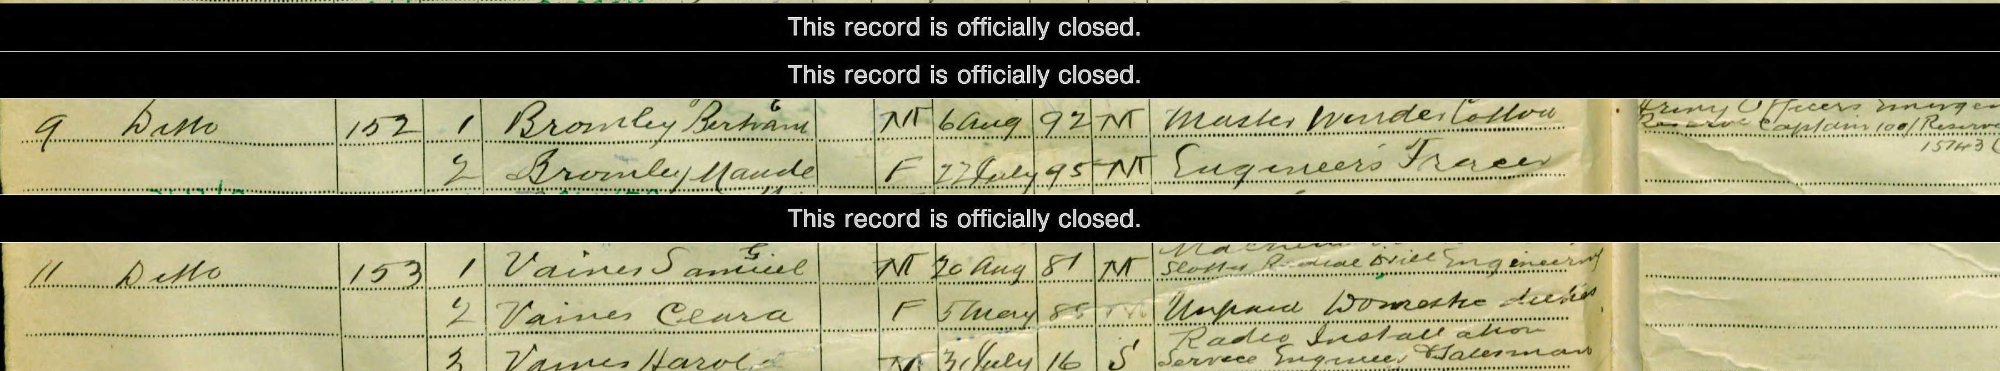 This record is officially closed.
This record is officially closed.
9 Ditto 152 1 Bromley Bertram G M 6 Aug 92 M Master Winder Cotton Army Officers Emergen
Reserve Captain 100/Reserve
2 Bromley Maude F 27 July 95 M Engineers Tracer 15743
This record is officially closed.
11 Ditto 153 1 Vaines Samuel G M 20 Aug 81 M Slotter Radial Drill Engineering
2 Vaines Clara F 5 May M Unpaid Domestic duties
Radio Installation
3 Vaines Harold M 31 July 16 S Service Engineer & Salesman